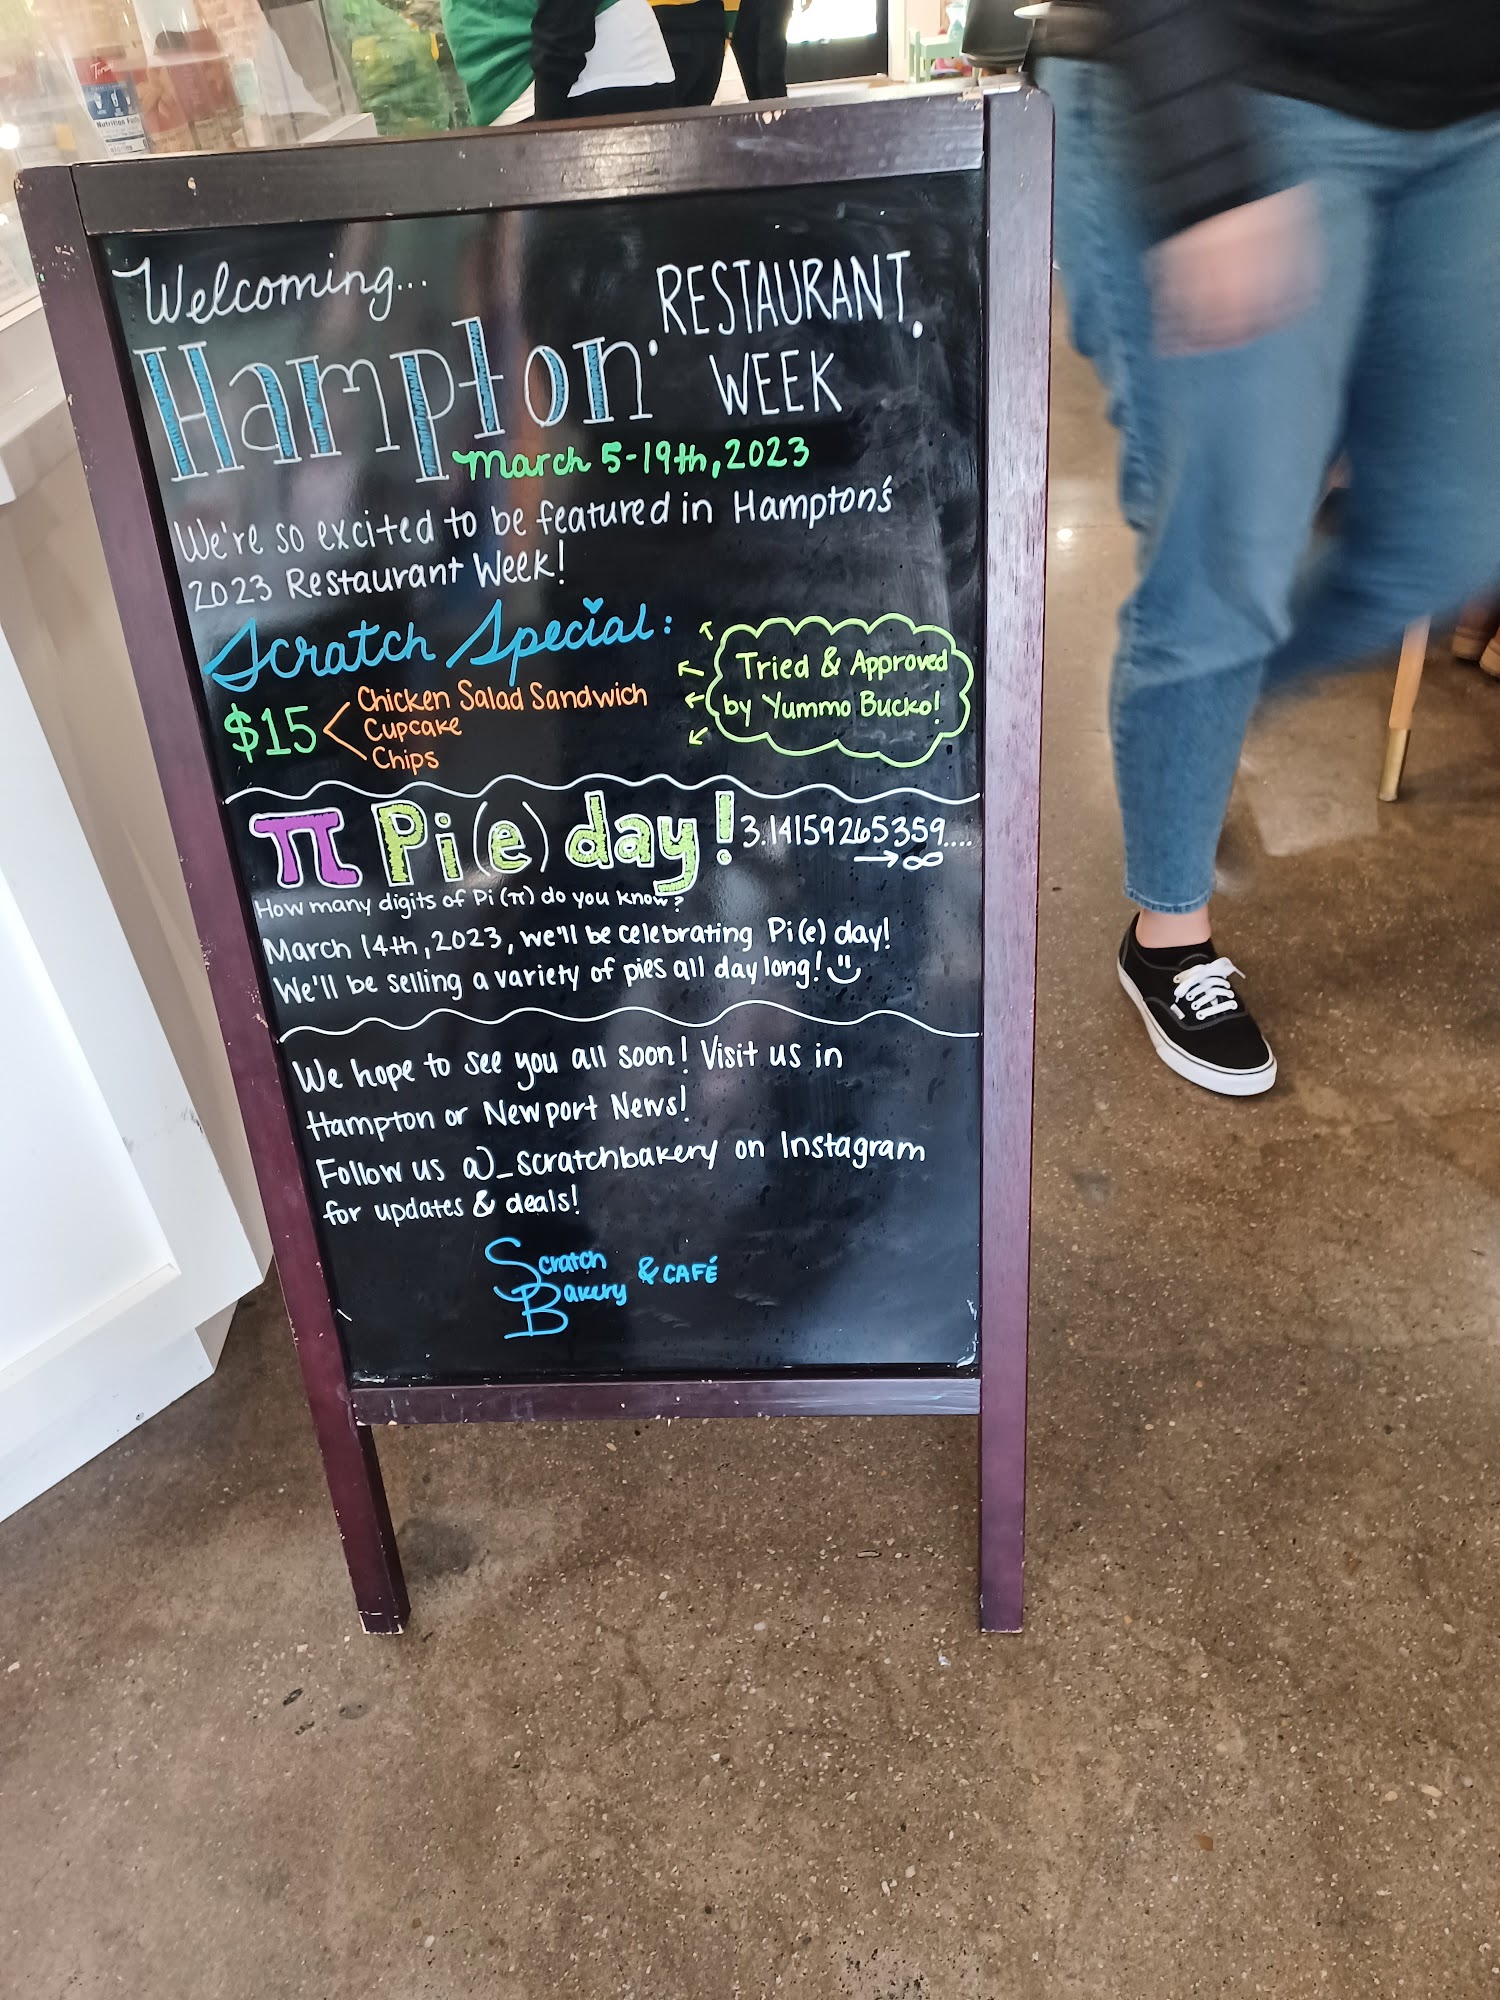 Welcoming...
Hampton RESTAURANT
WEEK
March 5-19th, 2023
We're so excited to be featured in Hampton's
2023 Restaurant Week!
Scratch Special:
$15
Chicken Salad Sandwich
Cupcake
Chips
Tried & Approved
by Yummo Bucko!
π Pi(e) day! 3.14159265359....
→∞
How many digits of Pi (π) do you know?
March 14th, 2023, we'll be celebrating Pi(e) day!
We'll be selling a variety of pies all day long!
We hope to see you all soon! Visit us in
Hampton or Newport News!
Follow us @_scratchbakery on Instagram
for updates & deals!
Scratch
Bakery & CAFÉ
Nutrition Facts